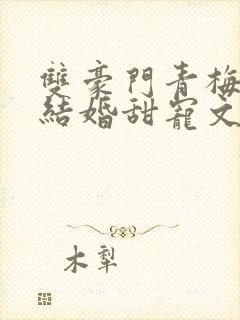 雙豪門青梅
結婚甜寵文
木犁